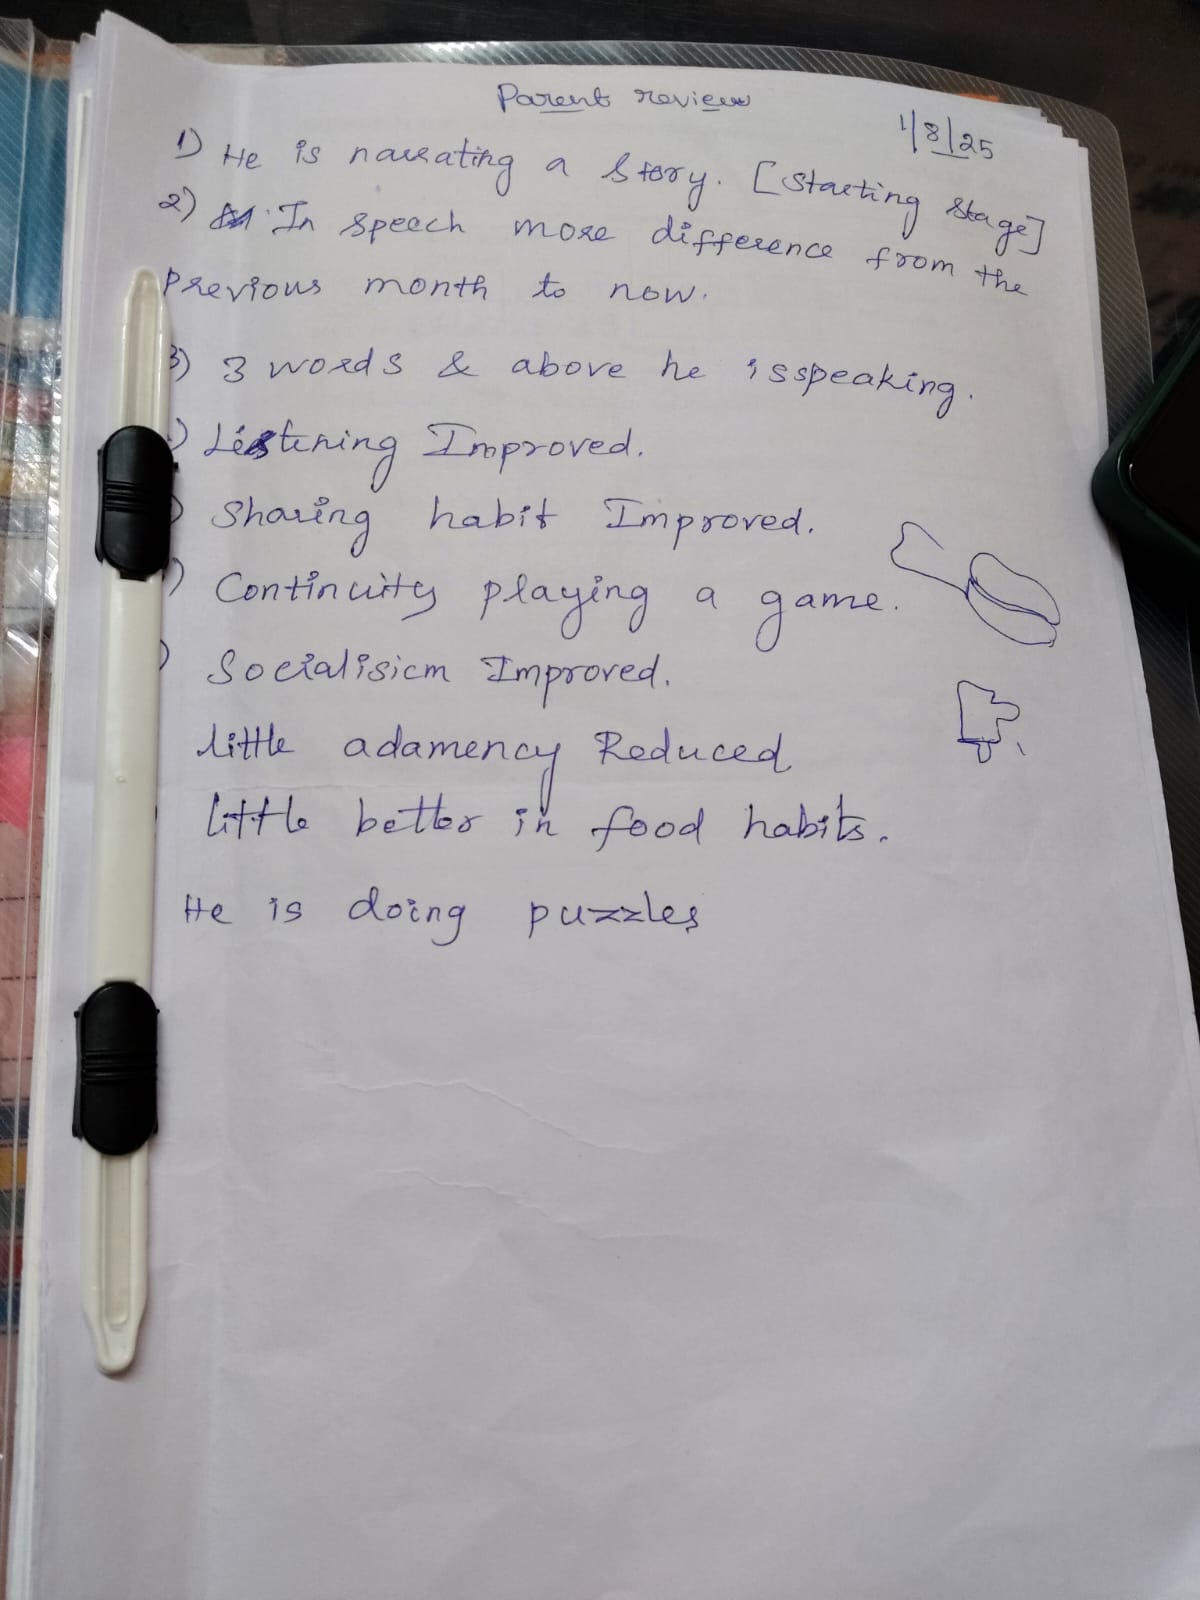 Parent review
1/8/25
1) He is narrating a story. [Starting stage]
2) In speech more difference from the
previous month to now.
3) 3 words & above he is speaking.
) Listening Improved.
) Sharing habit Improved.
) Continuity playing a game.
) Socialisicm Improved.
little adamency Reduced
little better in food habits.
He is doing puzzles